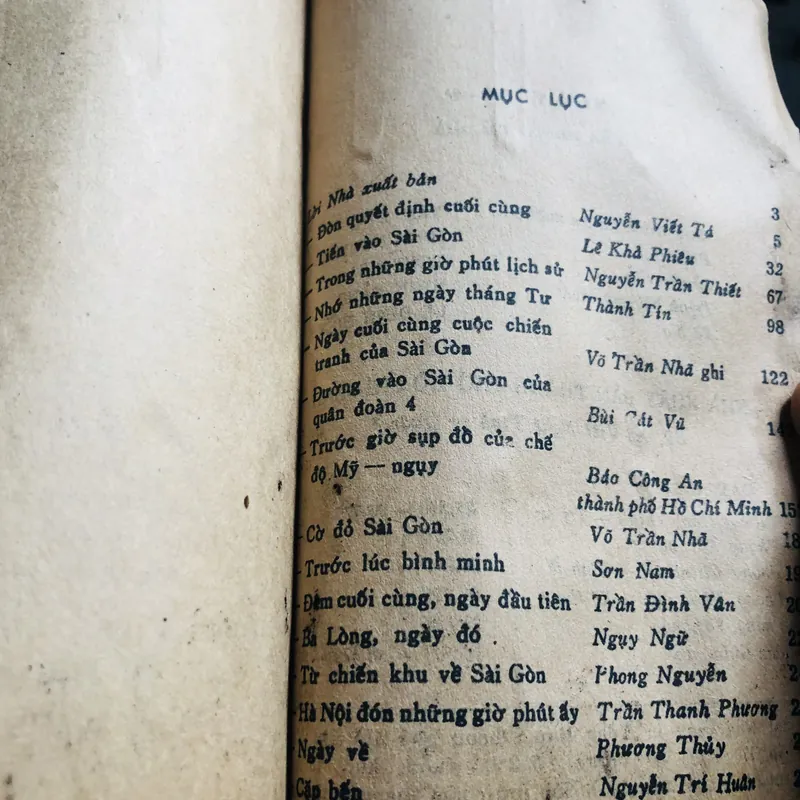 MỤC LỤC
Lời Nhà xuất bản 3
- Đòn quyết định cuối cùng Nguyễn Viết Tá 5
- Tiến vào Sài Gòn Lê Khả Phiêu 32
- Trong những giờ phút lịch sử Nguyễn Trần Thiết 67
- Nhớ những ngày tháng Tư Thành Tín 98
- Ngày cuối cùng cuộc chiến
tranh của Sài Gòn Võ Trần Nhã ghi 122
- Đường vào Sài Gòn của
quân đoàn 4 Bùi Cát Vũ
- Trước giờ sụp đổ của chế
độ Mỹ — ngụy Báo Công An
thành phố Hồ Chí Minh
- Cờ đỏ Sài Gòn Võ Trần Nhã
- Trước lúc bình minh Sơn Nam
- Đêm cuối cùng, ngày đầu tiên Trần Đình Vân
- Lòng, ngày đó Ngụy Ngữ
- Từ chiến khu về Sài Gòn Phong Nguyễn
- Hà Nội đón những giờ phút ấy Trần Thanh Phương
- Ngày về Phương Thủy
- Cặp bến Nguyễn Trí Huân